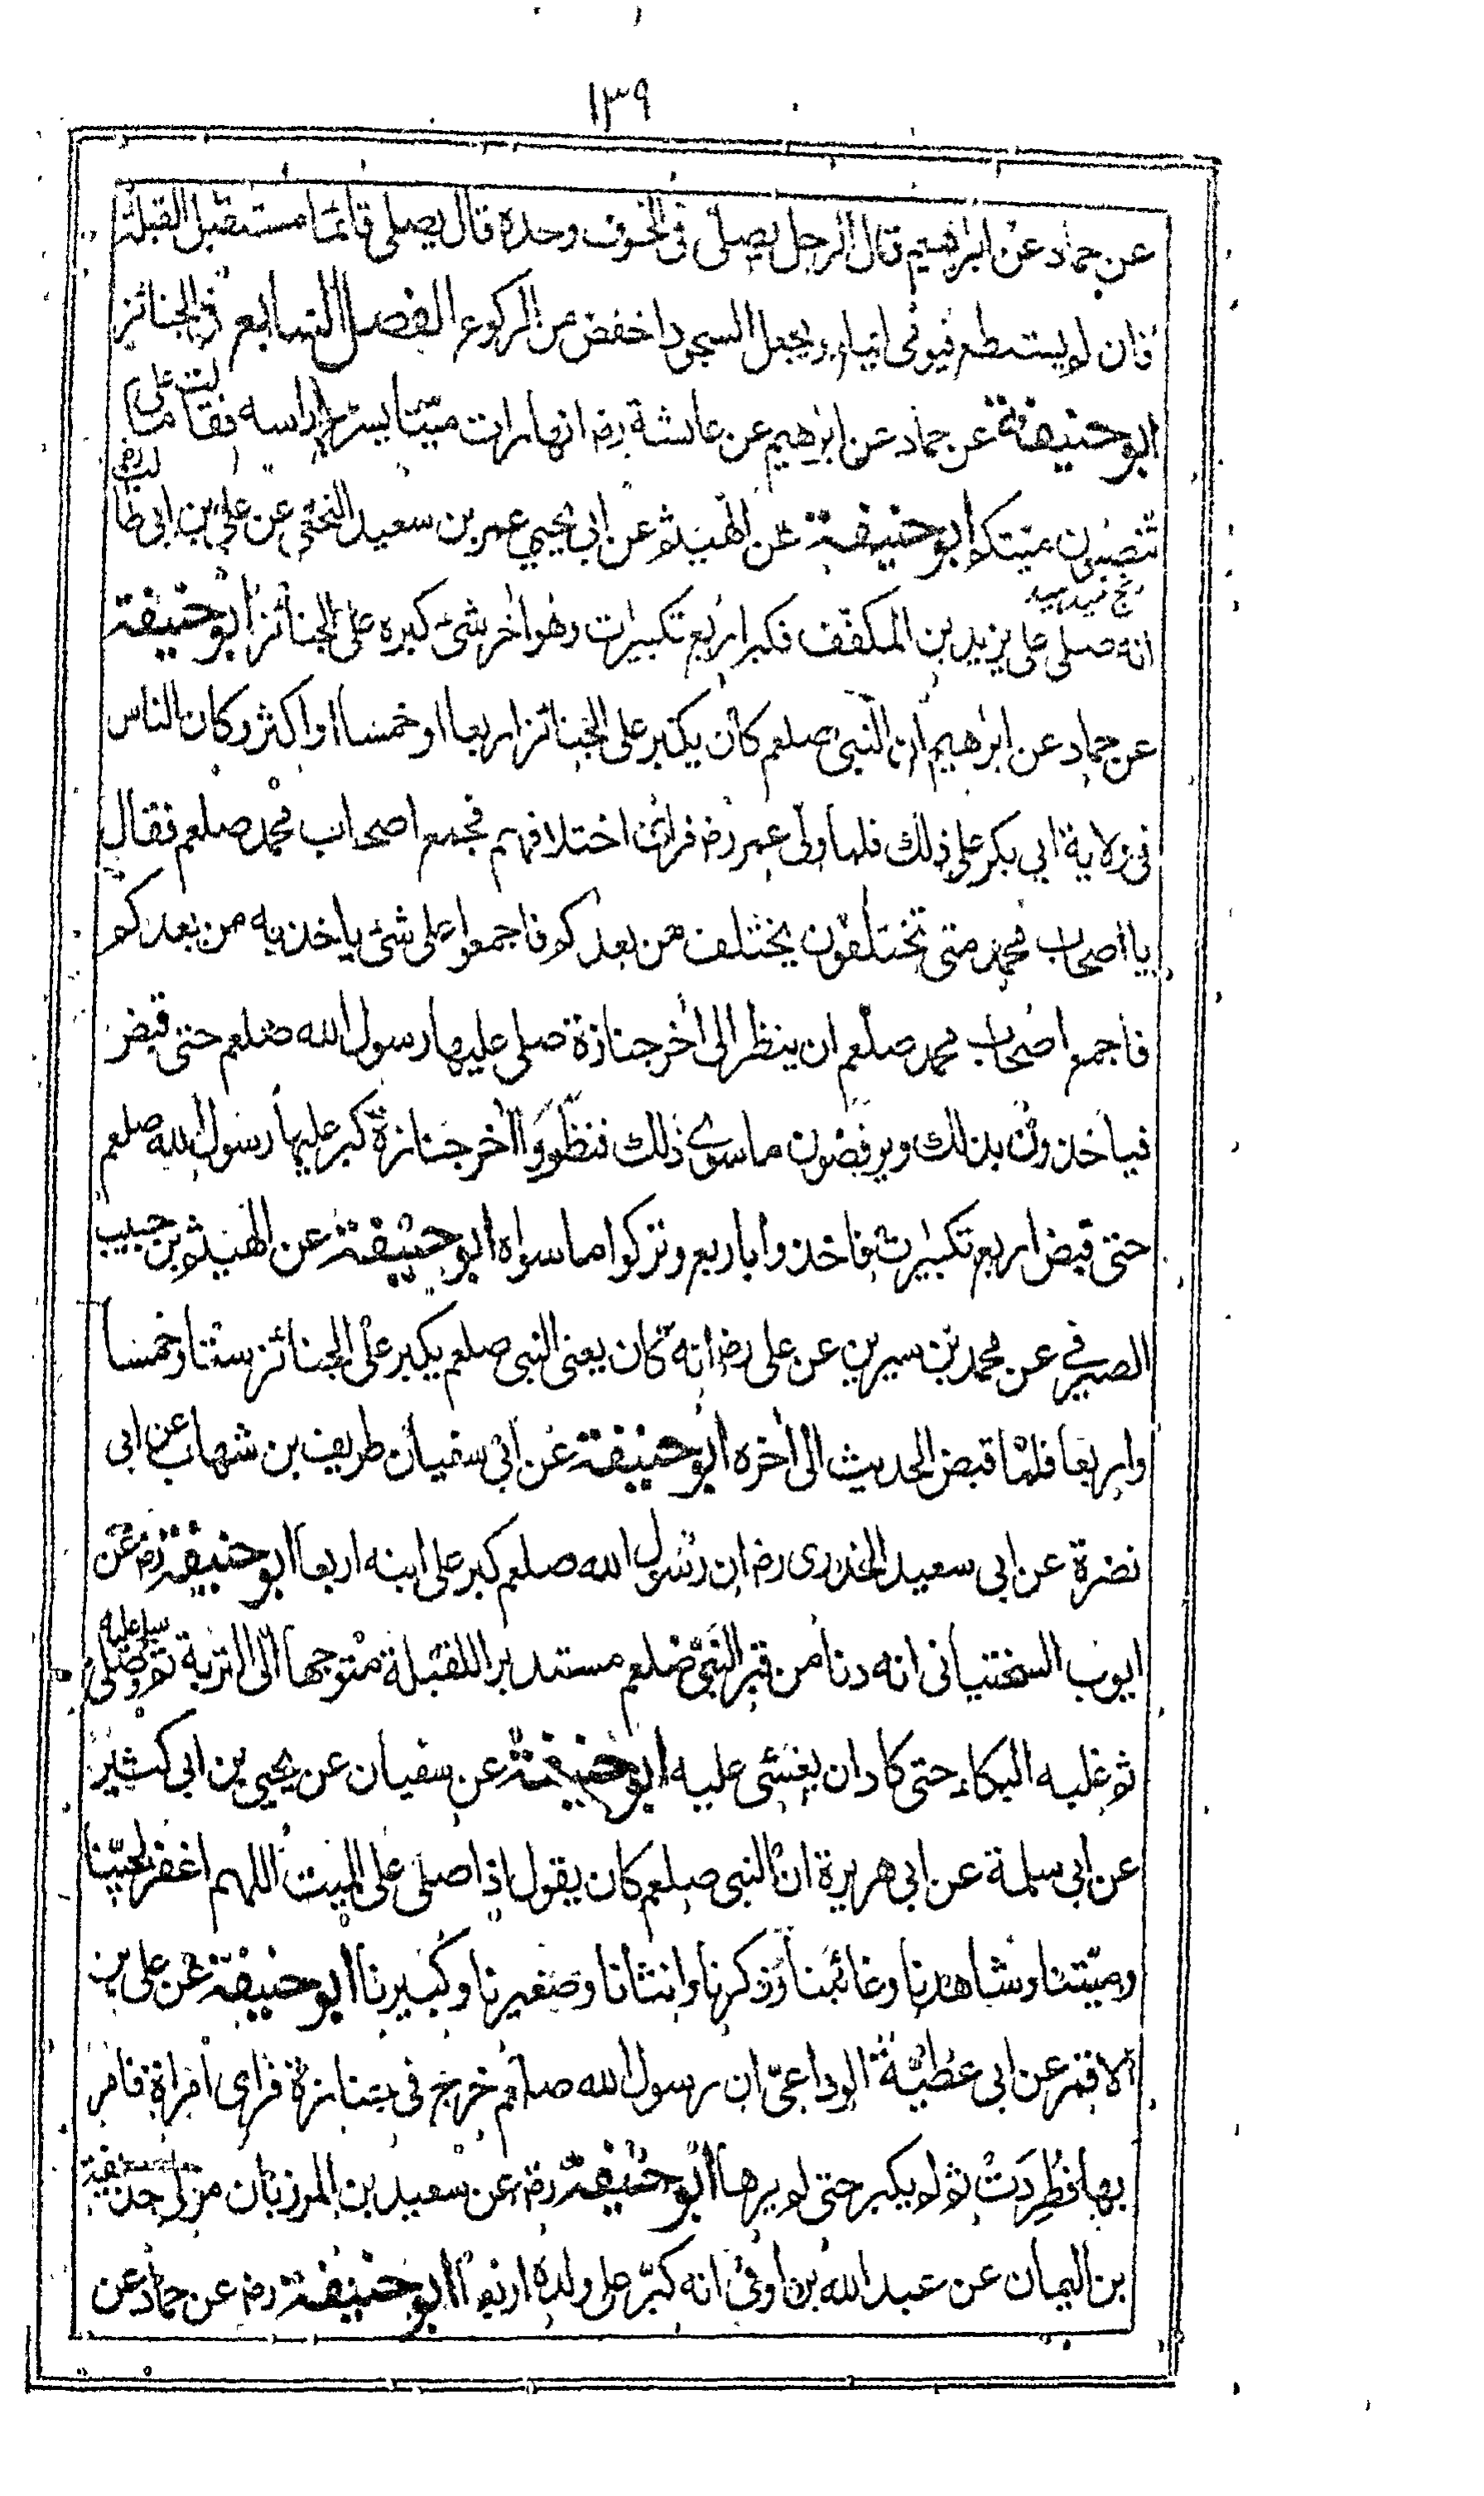 ١٣٩
عن حماد عن ابراهيم قال الرجل يصلى فى الخوف وحده قال يصلى قائما مستقبل القبلة
فان لم يستطع فيومى ايماء ويجعل السجود اخفض من الركوع الفصل السابع فى الجنائز
ابو حنيفة عن حماد عن ابرهيم عن عائشة رض انها رات ميتا يسرح راسه فقالت على ما
تنصبون ميتكم ابو حنيفة عن الهيثم عن ابى يحيي عمر بن سعيد النخعى عن على بن ابى طالب رض
انه صلى على يزيد بن المكفف فكبر اربع تكبيرات وهو اخر شئ كبره على الجنائز ابو حنيفة
عن حماد عن ابرهيم ان النبى صلعم كان يكبر على الجنائز اربعا او خمسا او اكثر وكان الناس
فى ولاية ابى بكر على ذلك فلما ولى عمر رض فراى اختلافهم فجمع اصحاب محمد صلعم فقال
يا اصحاب محمد متى تختلفون يختلف من بعدكم فاجمعوا على شئ ياخذ به من بعدكم
فاجمع اصحاب محمد صلعم ان ينظر الى اخر جنازة صلى عليها رسول الله صلعم حتى قبض
فياخذون بذلك ويرفضون ما سوى ذلك فنظروا اخر جنازة كبر عليها رسول الله صلعم
حتى قبض اربع تكبيرات فاخذوا باربع وتركوا ما سواه ابو حنيفة عن الهيثم بن حبيب
الصيرفى عن محمد بن سيرين عن على رض انه كان يعنى النبى صلعم يكبر على الجنائز ستا وخمسا
واربعا فلما قبض الحديث الى اخره ابو حنيفة عن ابى سفيان طريف بن شهاب عن ابى
نضرة عن ابى سعيد الخدرى رض ان رسول الله صلعم كبر على ابنه اربعا ابو حنيفة رض عن
ايوب السختيانى انه دنا من قبر النبى صلعم مستدبرا للقبلة متوجها الى التربة ثم وصلى
ثم غلبه البكاء حتى كاد ان يغشى عليه ابو حنيفة عن سفيان عن يحيي بن ابى كثير
عن ابى سلمة عن ابى هريرة ان النبى صلعم كان يقول اذا صلى على الميت اللهم اغفر لحينا
وميتنا وشاهدنا وغائبنا وذكرنا وانثانا وصغيرنا وكبيرنا ابو حنيفة عن على بن
الاقمر عن ابى عطية الوداعى ان رسول الله صلعم خرج فى جنازة فراى امراة فامر
بها فطردت ثم لم يكبر حتى لم يرها ابو حنيفة رض عن سعيد بن المرزبان مولى حذيفة
بن اليمان عن عبد الله بن اوفى انه كبر على ولده اربعا ابو حنيفة رض عن حماد عن